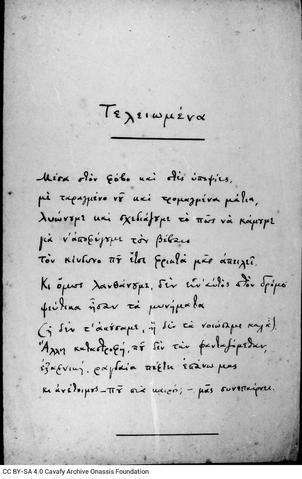 Τελειωμένα
Μέσα στον φόβο και στες υποψίες,
με ταραγμένο νου και τρομαγμένα μάτια,
λυώνουμε και σχεδιάζουμε το πώς να κάμουμε
για ν' αποφύγουμε τον βέβαιο
τον κίνδυνο που έτσι φρικτά μας απειλεί.
Κι όμως λανθάνουμε, δεν είν' αυτός στον δρόμο
ψεύτικα ήσαν τα μηνύματα
(ή δεν τ' ακούσαμε, ή δεν τα νοιώσαμε καλά).
Άλλη καταστροφή, που δεν την φανταζόμεθαν,
εξαφνική, ραγδαία πέφτει επάνω μας
κι ανέτοιμους — που πια καιρός; — μας συνεπαίρνει.
CC BY-SA 4.0 Cavafy Archive Onassis Foundation